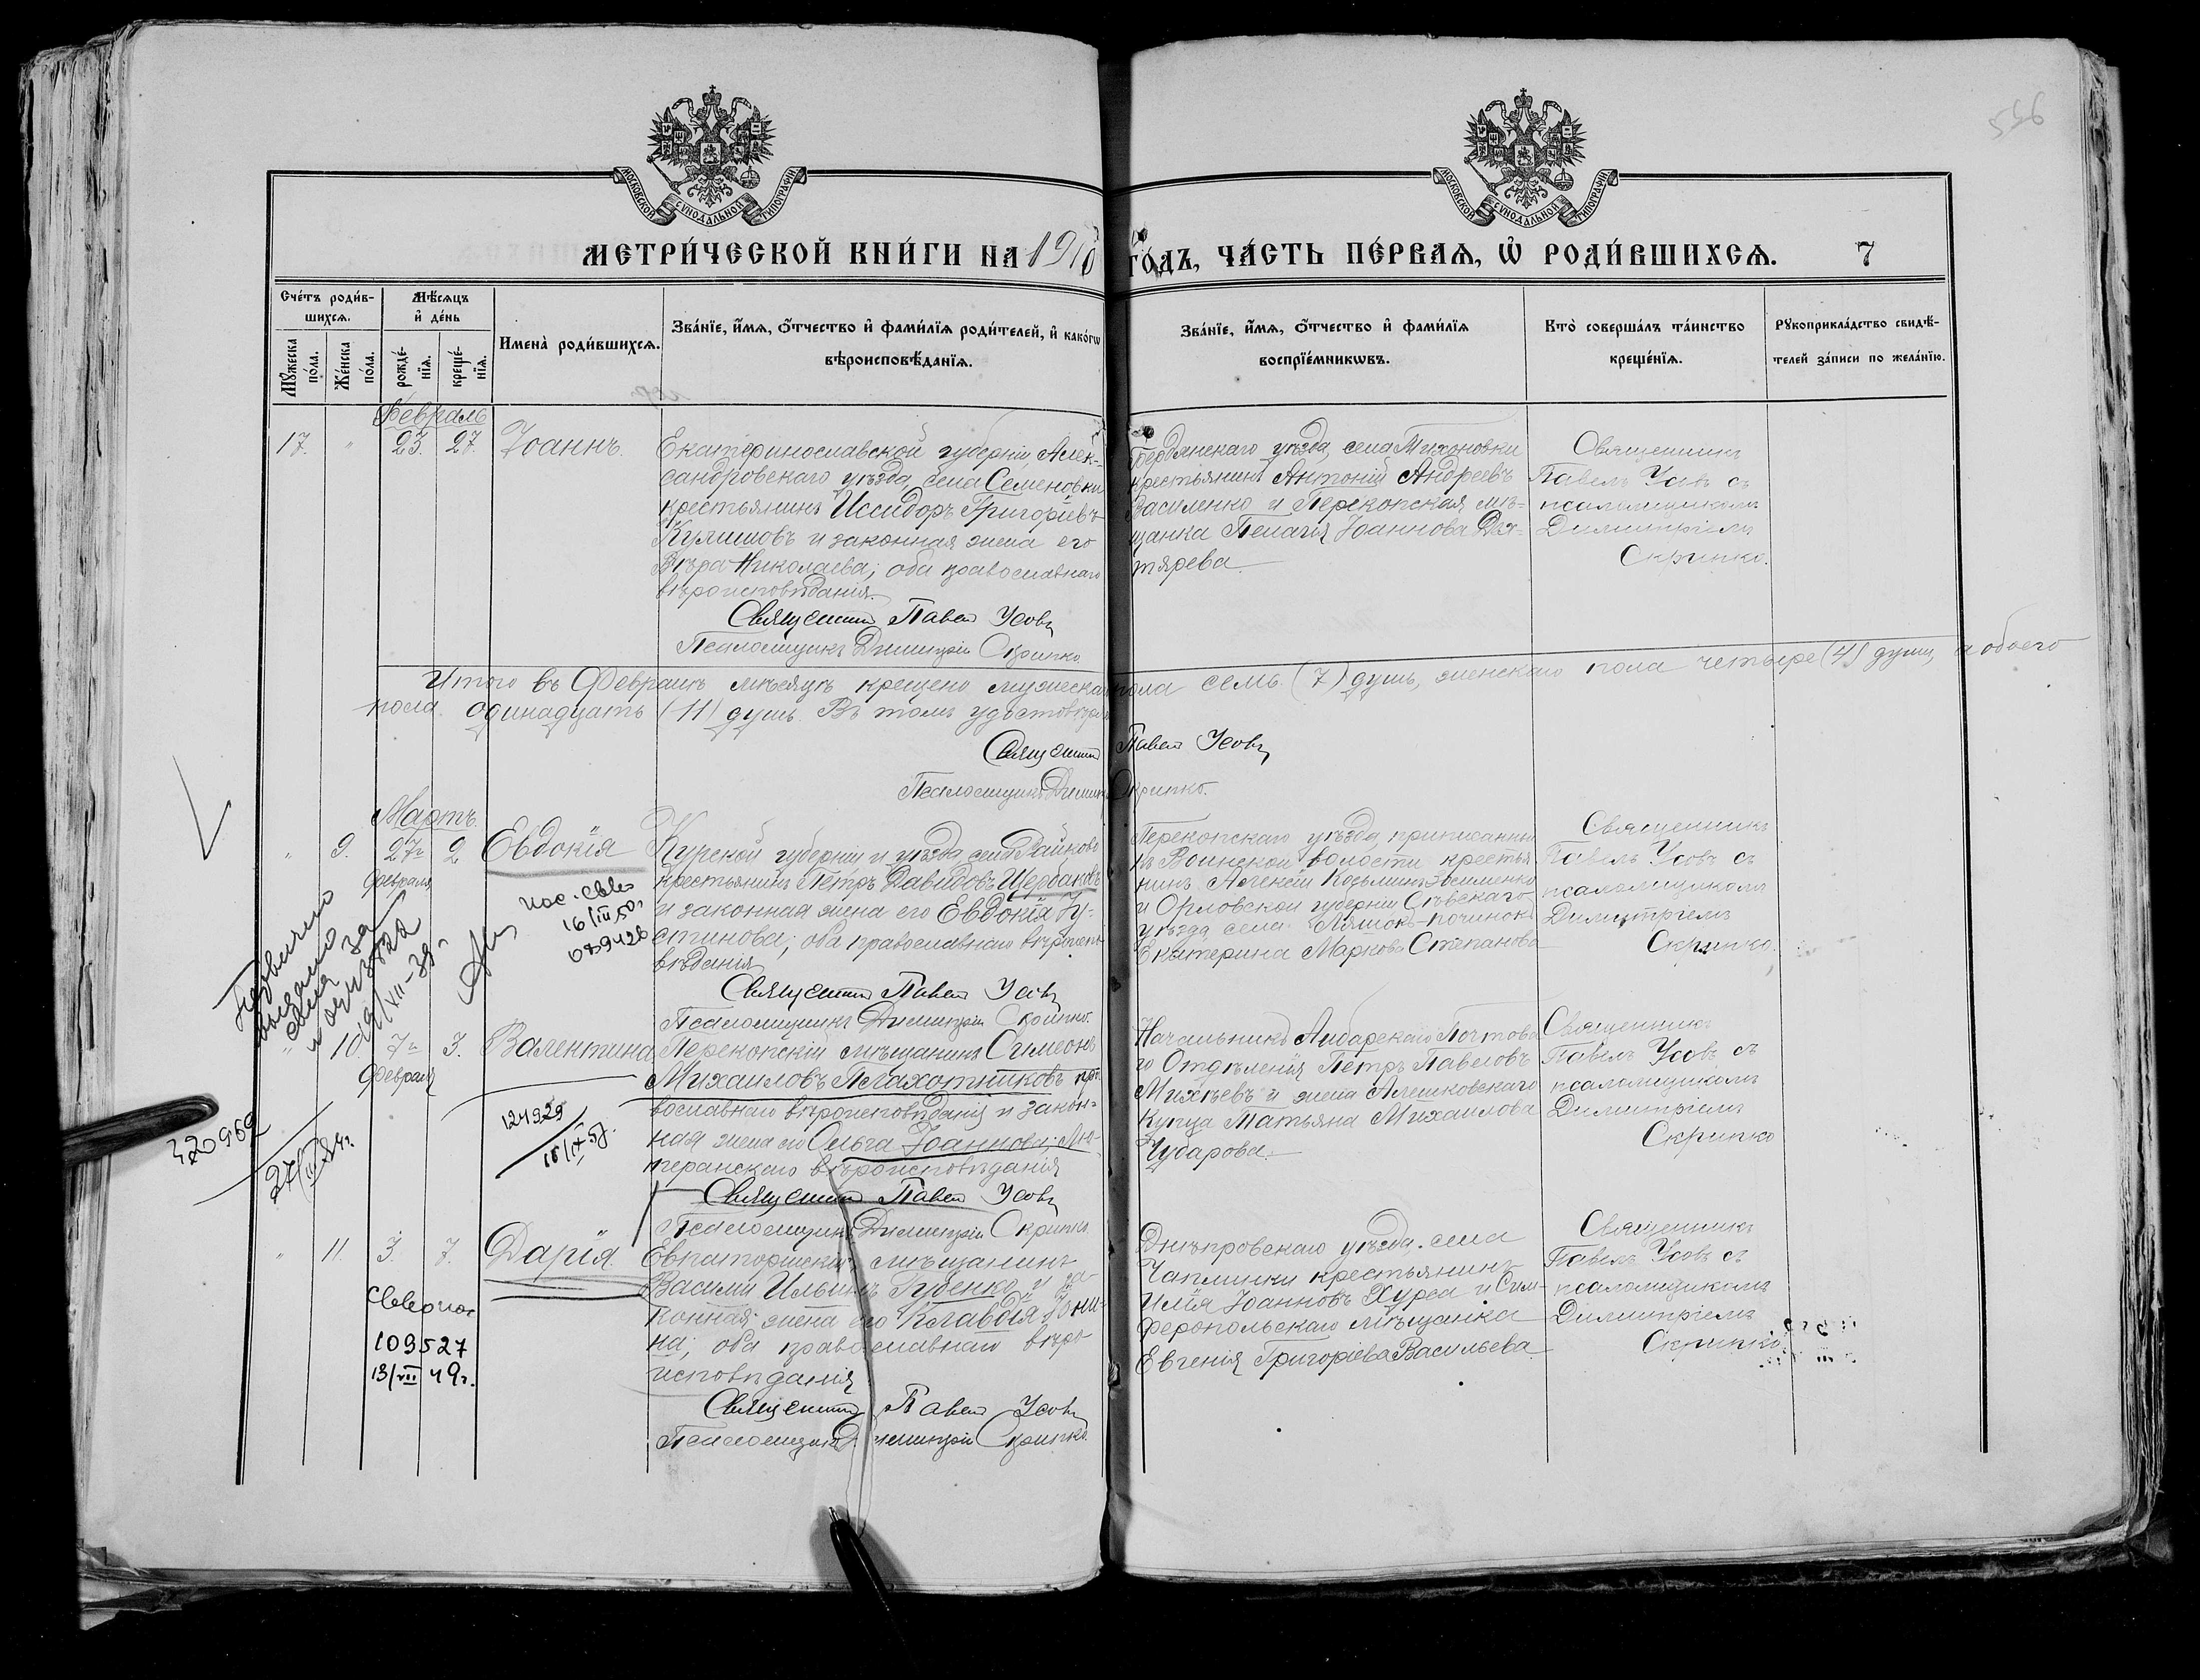 556
МОСКОВСКОЙ СѴНОДАЛЬНОЙ ТИПОГРАФІИ
МОСКОВСКОЙ СѴНОДАЛЬНОЙ ТИПОГРАФІИ
МЕТРИ́ЧЕСКОЙ КНИ́ГИ НА 1910 ГО́ДЪ, ЧА́СТЬ ПЕ́РВАѦ, Ѡ҆ РОДИ́ВШИХСѦ. 7
Сче́тъ роди́в-
шихсѧ.
Мꙋ́жеска по́ла.
Же́нска по́ла.
Мѣ́сѧцъ
и҆ де́нь
рожде́-
нїѧ.
креще́-
нїѧ.
И҆мена̀ роди́вшихсѧ.
Зва́нїе, и҆́мѧ, ѻ҆́тчество и҆ фами́лїѧ роди́телей, и҆ како́гѡ
вѣроисповѣ́данїѧ.
Зва́нїе, и҆́мѧ, ѻ҆́тчество и҆ фами́лїѧ
воспрїе́мникѡвъ.
Кто̀ соверша́лъ та́инство
креще́нїѧ.
Рꙋкоприкла́дство свидѣ́-
телей за́писи по жела́нїю.
Февраль
17. " 23. 27. Іоаннъ.
Екатеринославской губерніи, Алек-
сандровскаго уѣзда, села Семеновки
крестьянинъ Исидоръ Григоріевъ
Кулишовъ и законная жена его
Вѣра Николаева; оба православнаго
вѣроисповѣданія.
Священникъ Павелъ Усовъ
Псаломщикъ Димитрій Скрипко
Бердянскаго уѣзда, села Тихоновки
крестьянинъ Антоній Андреевъ
Василенко и Перекопская мѣ-
щанка Пелагія Іоаннова Дех-
тярева
Священникъ
Павелъ Усовъ съ
псаломщикомъ
Димитріемъ
Скрипко.
Итого въ Февралѣ мѣсяцѣ крещено мужескаго пола семь (7) душъ, женскаго пола четыре (4) души, а обоего
пола одинадцать (11) душъ. Въ томъ удостовѣряемъ
Священникъ Павелъ Усовъ
Псаломщикъ Димитрій Скрипко.
Мартъ.
" 9. 27го 2 Евдокія
Февраля
Курской губерніи и уѣзда, села Райково
крестьянинъ Петръ Давидовъ Щербаковъ
и законная жена его Евдокія Іу-
стинова; оба православнаго вѣроиспо-
вѣданія
Священникъ Павелъ Усовъ
Псаломщикъ Димитрій Скрипко.
Перекопскаго уѣзда, приписанный
къ Воинской волости крестья
нинъ Алексій Козьминъ
и Орловской губерніи Сѣвскаго
уѣзда села
Екатерина Маркова Степанова
Священникъ
Павелъ Усовъ съ
псаломщикомъ
Димитріемъ
Скрипко.
пос. св-во
16/III 50г
079426
Первично
выдано
св-во за
19/XII-39г
" 10. 7го 3. Валентина
Февраля
Перекопскій мѣщанинъ Симеонъ
Михаиловъ Плахотниковъ пра-
вославнаго вѣроисповѣданія и закон-
ная жена его Ольга Іоаннова, лю-
теранскаго вѣроисповѣданія
Священникъ Павелъ Усовъ
Псаломщикъ Димитрій Скрипко
Начальникъ Айбарскаго Почтова
го Отдѣленія Петръ Павловъ
Михѣевъ и жена Алешковскаго
купца Татьяна Михаилова
Чударова.
Священникъ
Павелъ Усовъ съ
псаломщикомъ
Димитріемъ
Скрипко
124929
15/IX 57.
320962
" 11. 3. 7. Дарія.
Евпаторійскій мѣщанинъ
Василій Ильинъ Губенко и за-
конная жена его Клавдія Іони-
на; оба православнаго вѣро-
исповѣданія
Священникъ Павелъ Усовъ
Псаломщикъ Димитрій Скрипко.
Днѣпровскаго уѣзда села
Чаплинки крестьянинъ
Илія Іоанновъ Хурса и Сим-
феропольскаго мѣщанка
Евгенія Григоріева Васильева
Священникъ
Павелъ Усовъ съ
псаломщикомъ
Димитріемъ
Скрипко
109527
13/VII 49г.